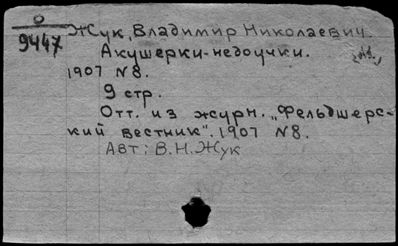 О
9447
Жук, Владимир Николаевич.
Акушерки-недоучки.
1907 N8.
9 стр.
Отт. из журн. „Фельдшерс-
кий вестник". 1907 N8.
Авт: В.Н. Жук